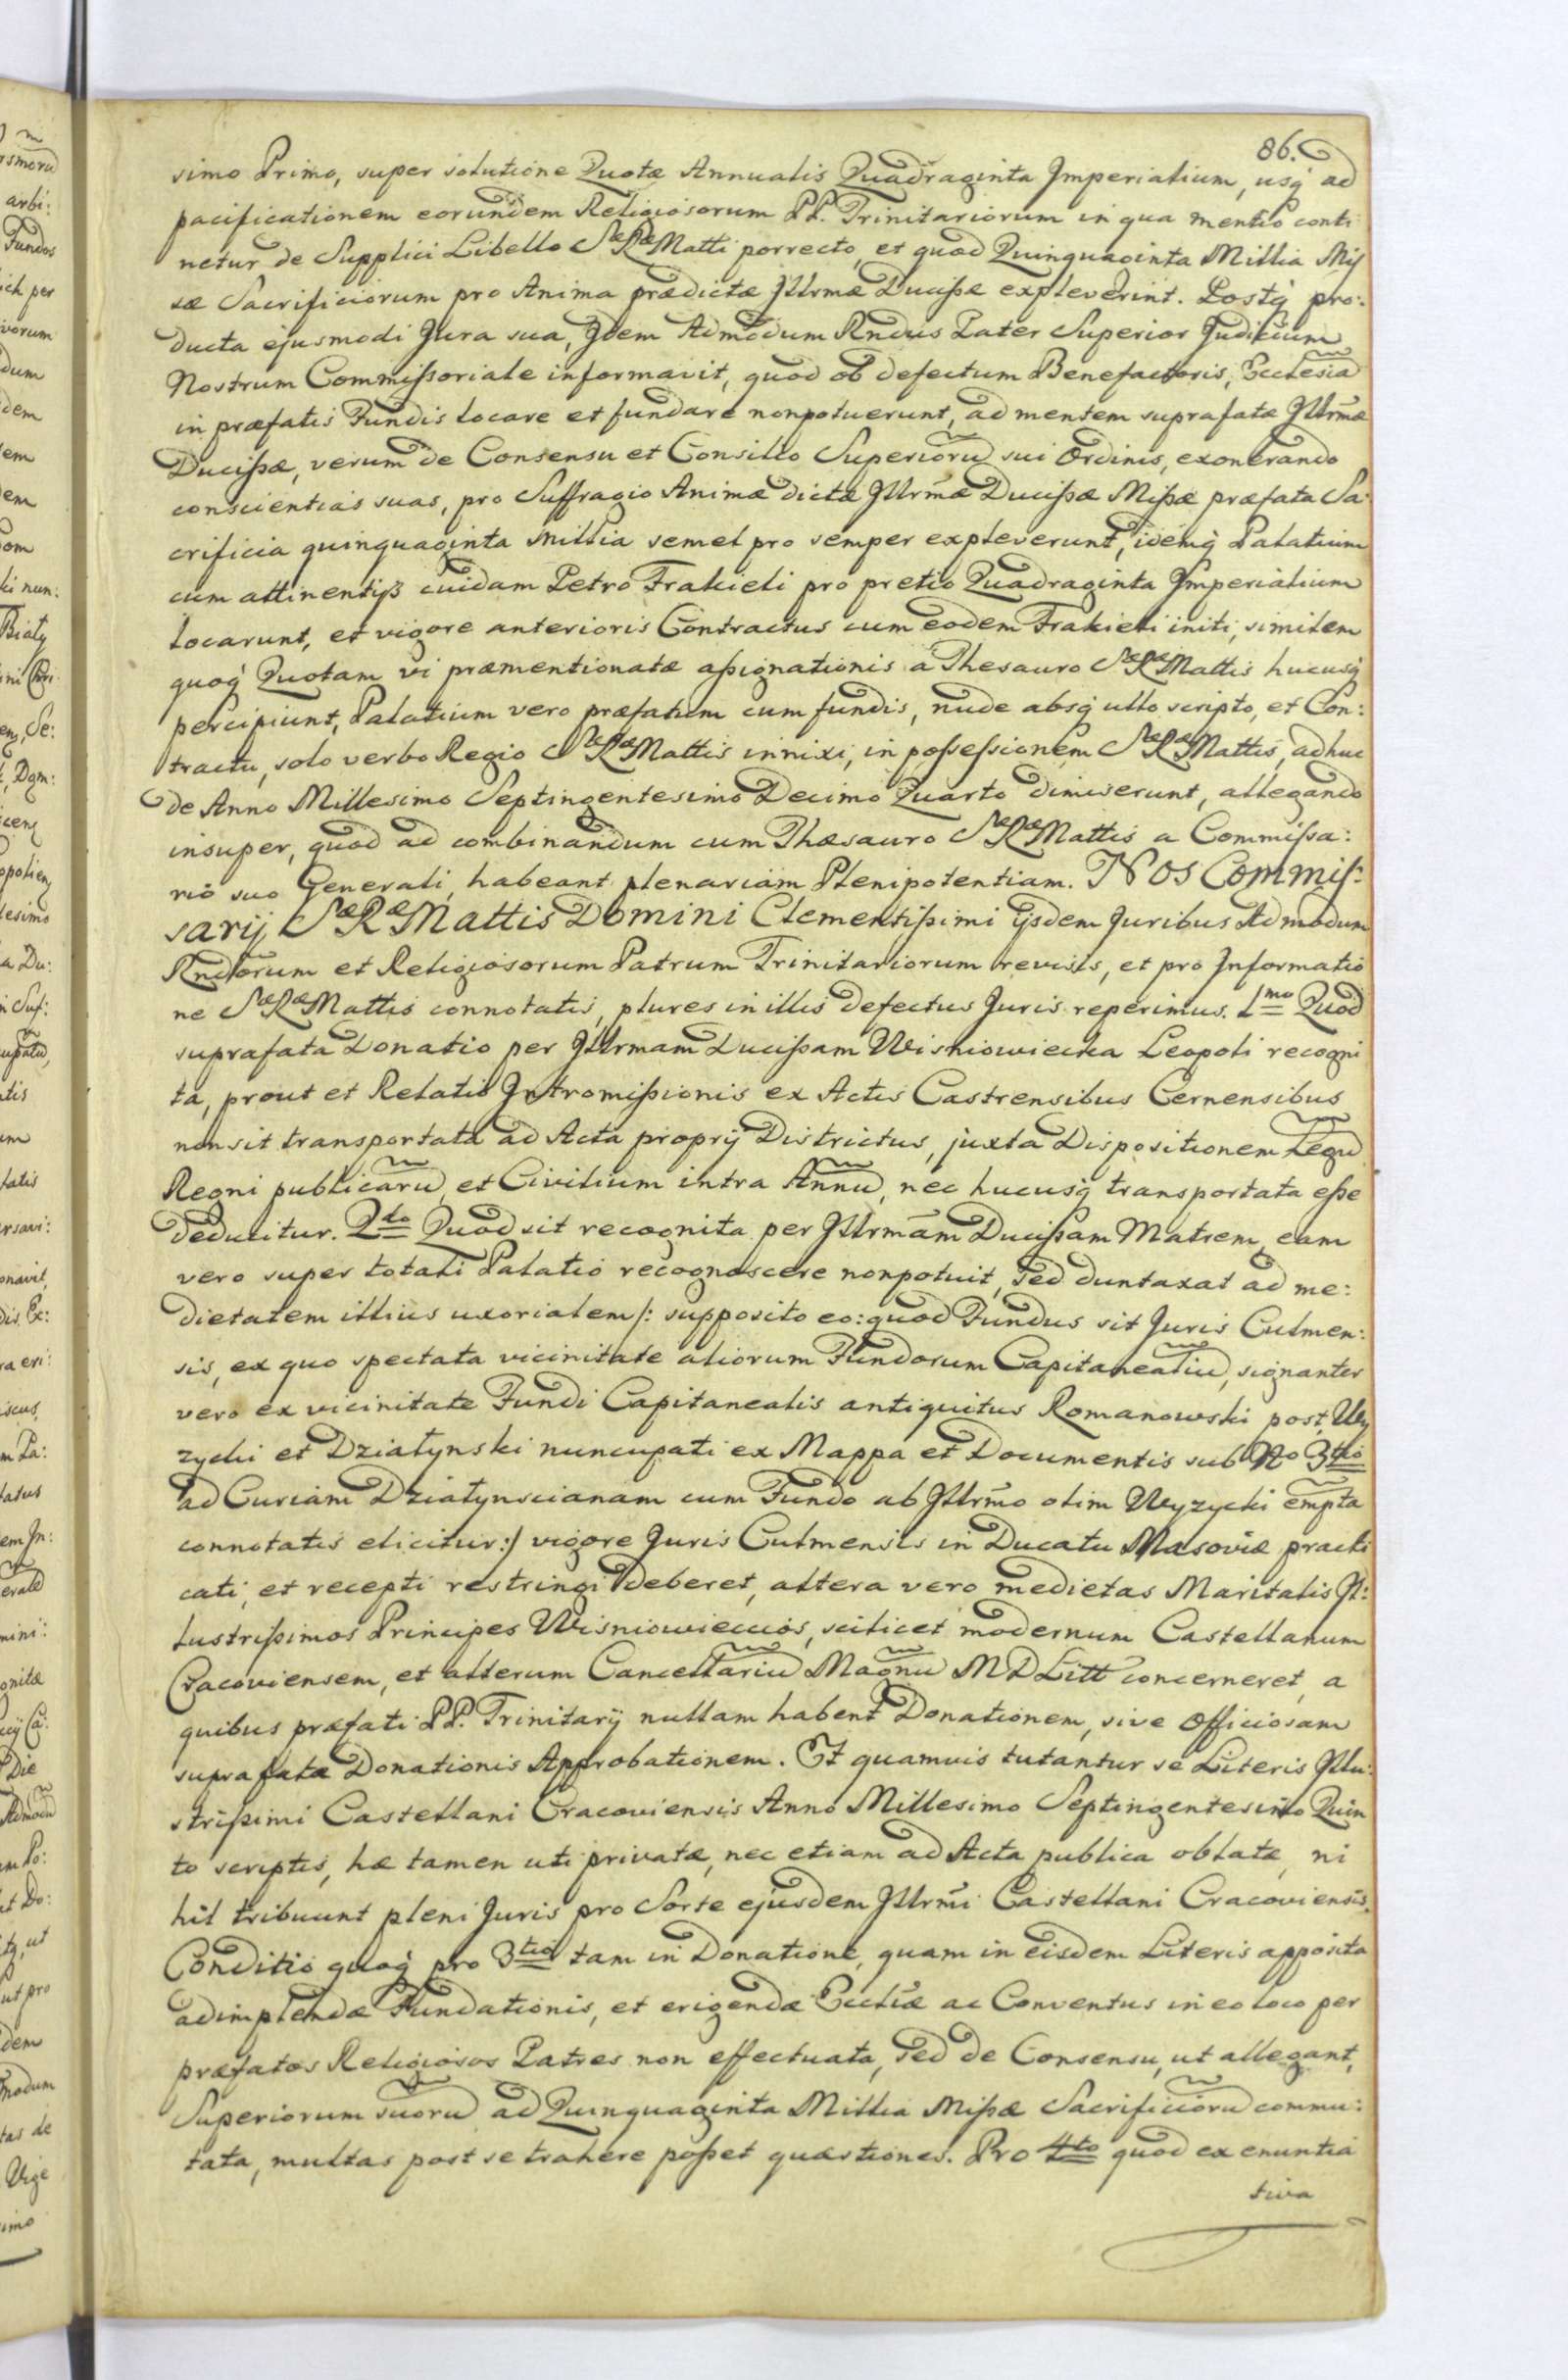 86.
simo Primo, super solutione Quotæ Annualis Quadraginta Imperialium, usq̀ ad
pacificationem eorundem Religiosorum PP. Trinitariorum in qua mentio conti
netur de Supplici Libello SæRæMatti porrecto, et quod Quinquaginta Millia Mis
sæ Sacrificiorum pro Anima prædictæ Illrmæ Ducißæ expleverint. Postq̀ pro:
ducta ejusmodi Jura sua, Idem Admodum Rndus Pater Superior Judicium
Nostrum Commißoriale informavit, quod ob defectum Benefactoris, Ecclesia
in præfatis Fundis locare et fundare nonpotuerunt, ad mentem suprafatæ Illrmæ
Ducißæ, verum de Consensu et Consilio Superiorũ sui Ordinis, exonerando
conscientias suas, pro Suffragio Animæ dictæ Illrmæ Ducißæ Mißæ præfata Sa:
crificia quinquaginta millia semel pro semper expleverunt, idemq̀ Palatium
cum attinentijß cuidam Petro Frakieli pro pretio Quadraginta Imperialium
locarunt, et vigore anterioris Contractus cum eodem Frakieli initi, similem
quoq̀ Quotam vi præmentionatæ aßignationis a Thesauro SæRæMattis hucusq̀
percipiunt, Palatium vero præfatum cum fundis, nude absq̀ ullo scripto, et Con:
tractu, solo verbo Regio SæRæMattis innixi, in poßeßionem SæRæMattis, adhuc
de Anno Millesimo Septingentesimo Decimo Quarto dimiserunt, allegando
insuper, quod ad combinandum cum Thæsauro SæRæMattis a Commißa:
rio suo Generali, habeant plenariam Plenipotentiam. NOS Commiß:
sarij SæRæMattis Domini Clementißimi ijsdem Juribus Admodum
Rndorum et Religiosorum Patrum Trinitariorum revisis, et pro Informatio
ne SæRæMattis connotatis, plures in illis defectus Juris reperimus. 1mo Quod
suprafata Donatio per Illrmam Ducißam Wisniowiecka Leopoli recogni
ta, prout et Relatio Intromißionis ex Actis Castrensibus Cernensibus
non sit transportata ad Acta proprij Districtus, juxta Dispositionem Legũ
Regni publicarũ et Civilium intra Annũ, nec hucusq̀ transportata eße
deducitur. 2do Quod sit recognita per Illrmam Ducißam Matrem, eam
vero super totali Palatio recognoscere nonpotuit, sed duntaxat ad me:
dietatem illius uxorialem /: supposito eo: quod Fundus sit Juris Culmen:
sis, ex quo spectata vicinitate aliorum Fundorum Capitanealiũ, signanter
vero ex vicinitate Fundi Capitanealis antiquitus Romanowski post, Wy
zycki et Działynski nuncupati ex Mappa et Documentis sub No 3tio
ad Curiam Działynscianam cum Fundo ab Illrmo olim Wyzycki empta
connotatis elicitur:/ vigore Juris Culmensis in Ducatu Masoviæ practi
cati, et recepti restringi deberet, altera vero medietas Maritalis Il:
lustrißimos Principes Wisniowieccios, scilicet modernum Castellanum
Cracoviensem, et alterum Cancellariũ Magnũ MDLitt concerneret, a
quibus præfati PP. Trinitarij nullam habent Donationem, sive Officiosam
suprafatæ Donationis Approbationem. Et quamvis tutantur se Literis Illu:
strißimi Castellani Cracoviensis Anno Millesimo Septingentesimo Quin
to scriptis, hæ tamen uti privatæ, nec etiam ad Acta publica oblatæ, ni
hil tribuunt pleni Juris pro Sorte ejusdem Illrmi Castellani Cracoviensis.
Conditio quoq̀ pro 3tio tam in Donatione, quam in eisdem Literis apposita
adimplendæ Fundationis, et erigendæ Ecclìæ ac Conventus in eo loco per
præfatos Religiosos Patres non effectuata, sed de Consensu, ut allegant,
Superiorum suorũ ad Quinquaginta Millia Mißæ Sacrificiorũ commu:
tata, multas post se trahere poßet quæstiones. Pro 4to quod ex enuntia
tiva